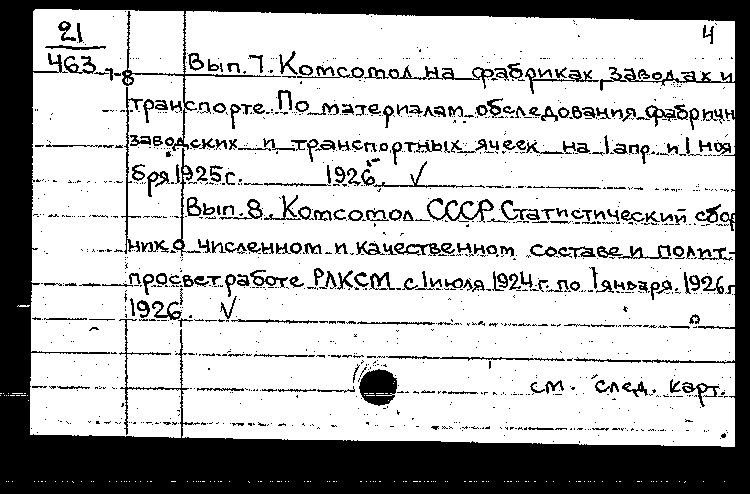 21 4
463 7-8 Вып. 7. Комсомол на фабриках, заводах и
транспорте. По материалам обследования фабричн
заводских и транспортных ячеек на 1 апр. и 1 ноя
бря 1925 г. 1926. ✓
Вып. 8. Комсомол СССР. Статистический сбор
ник о численном и качественном составе и полит-
просветработе РЛКСМ с 1 июля 1924 г. по 1 января 1926 г
1926. ✓
см. след. карт.